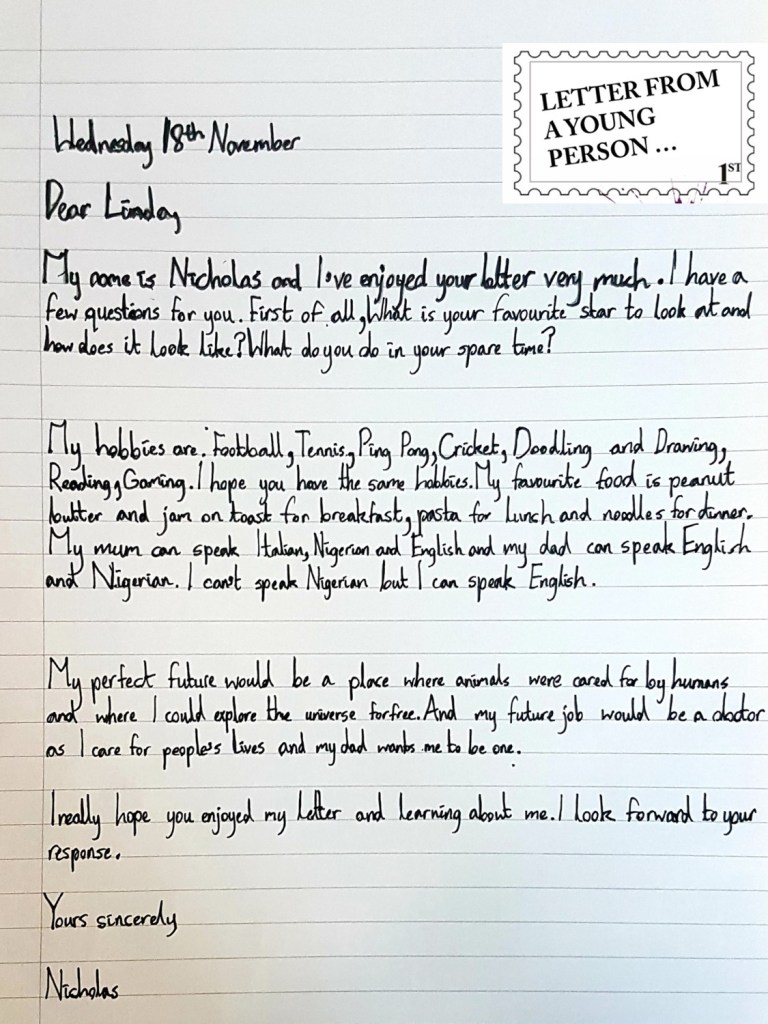 LETTER FROM
A YOUNG
PERSON ...
1ST
Wednesday 18th November
Dear Linday
My name is Nicholas and I've enjoyed your letter very much. I have a
few questions for you. First of all, What is your favourite star to look at and
how does it look like? What do you do in your spare time?
My hobbies are: Football, Tennis, Ping Pong, Cricket, Doodling and Drawing,
Reading, Gaming. I hope you have the same hobbies. My favourite food is peanut
butter and jam on toast for breakfast, pasta for lunch and noodles for dinner.
My mum can speak Italian, Nigerian and English and my dad can speak English
and Nigerian. I can't speak Nigerian but I can speak English.
My perfect future would be a place where animals were cared for by humans
and where I could explore the universe for free. And my future job would be a doctor
as I care for people's lives and my dad wants me to be one.
I really hope you enjoyed my letter and learning about me. I look forward to your
response.
Yours sincerely
Nicholas